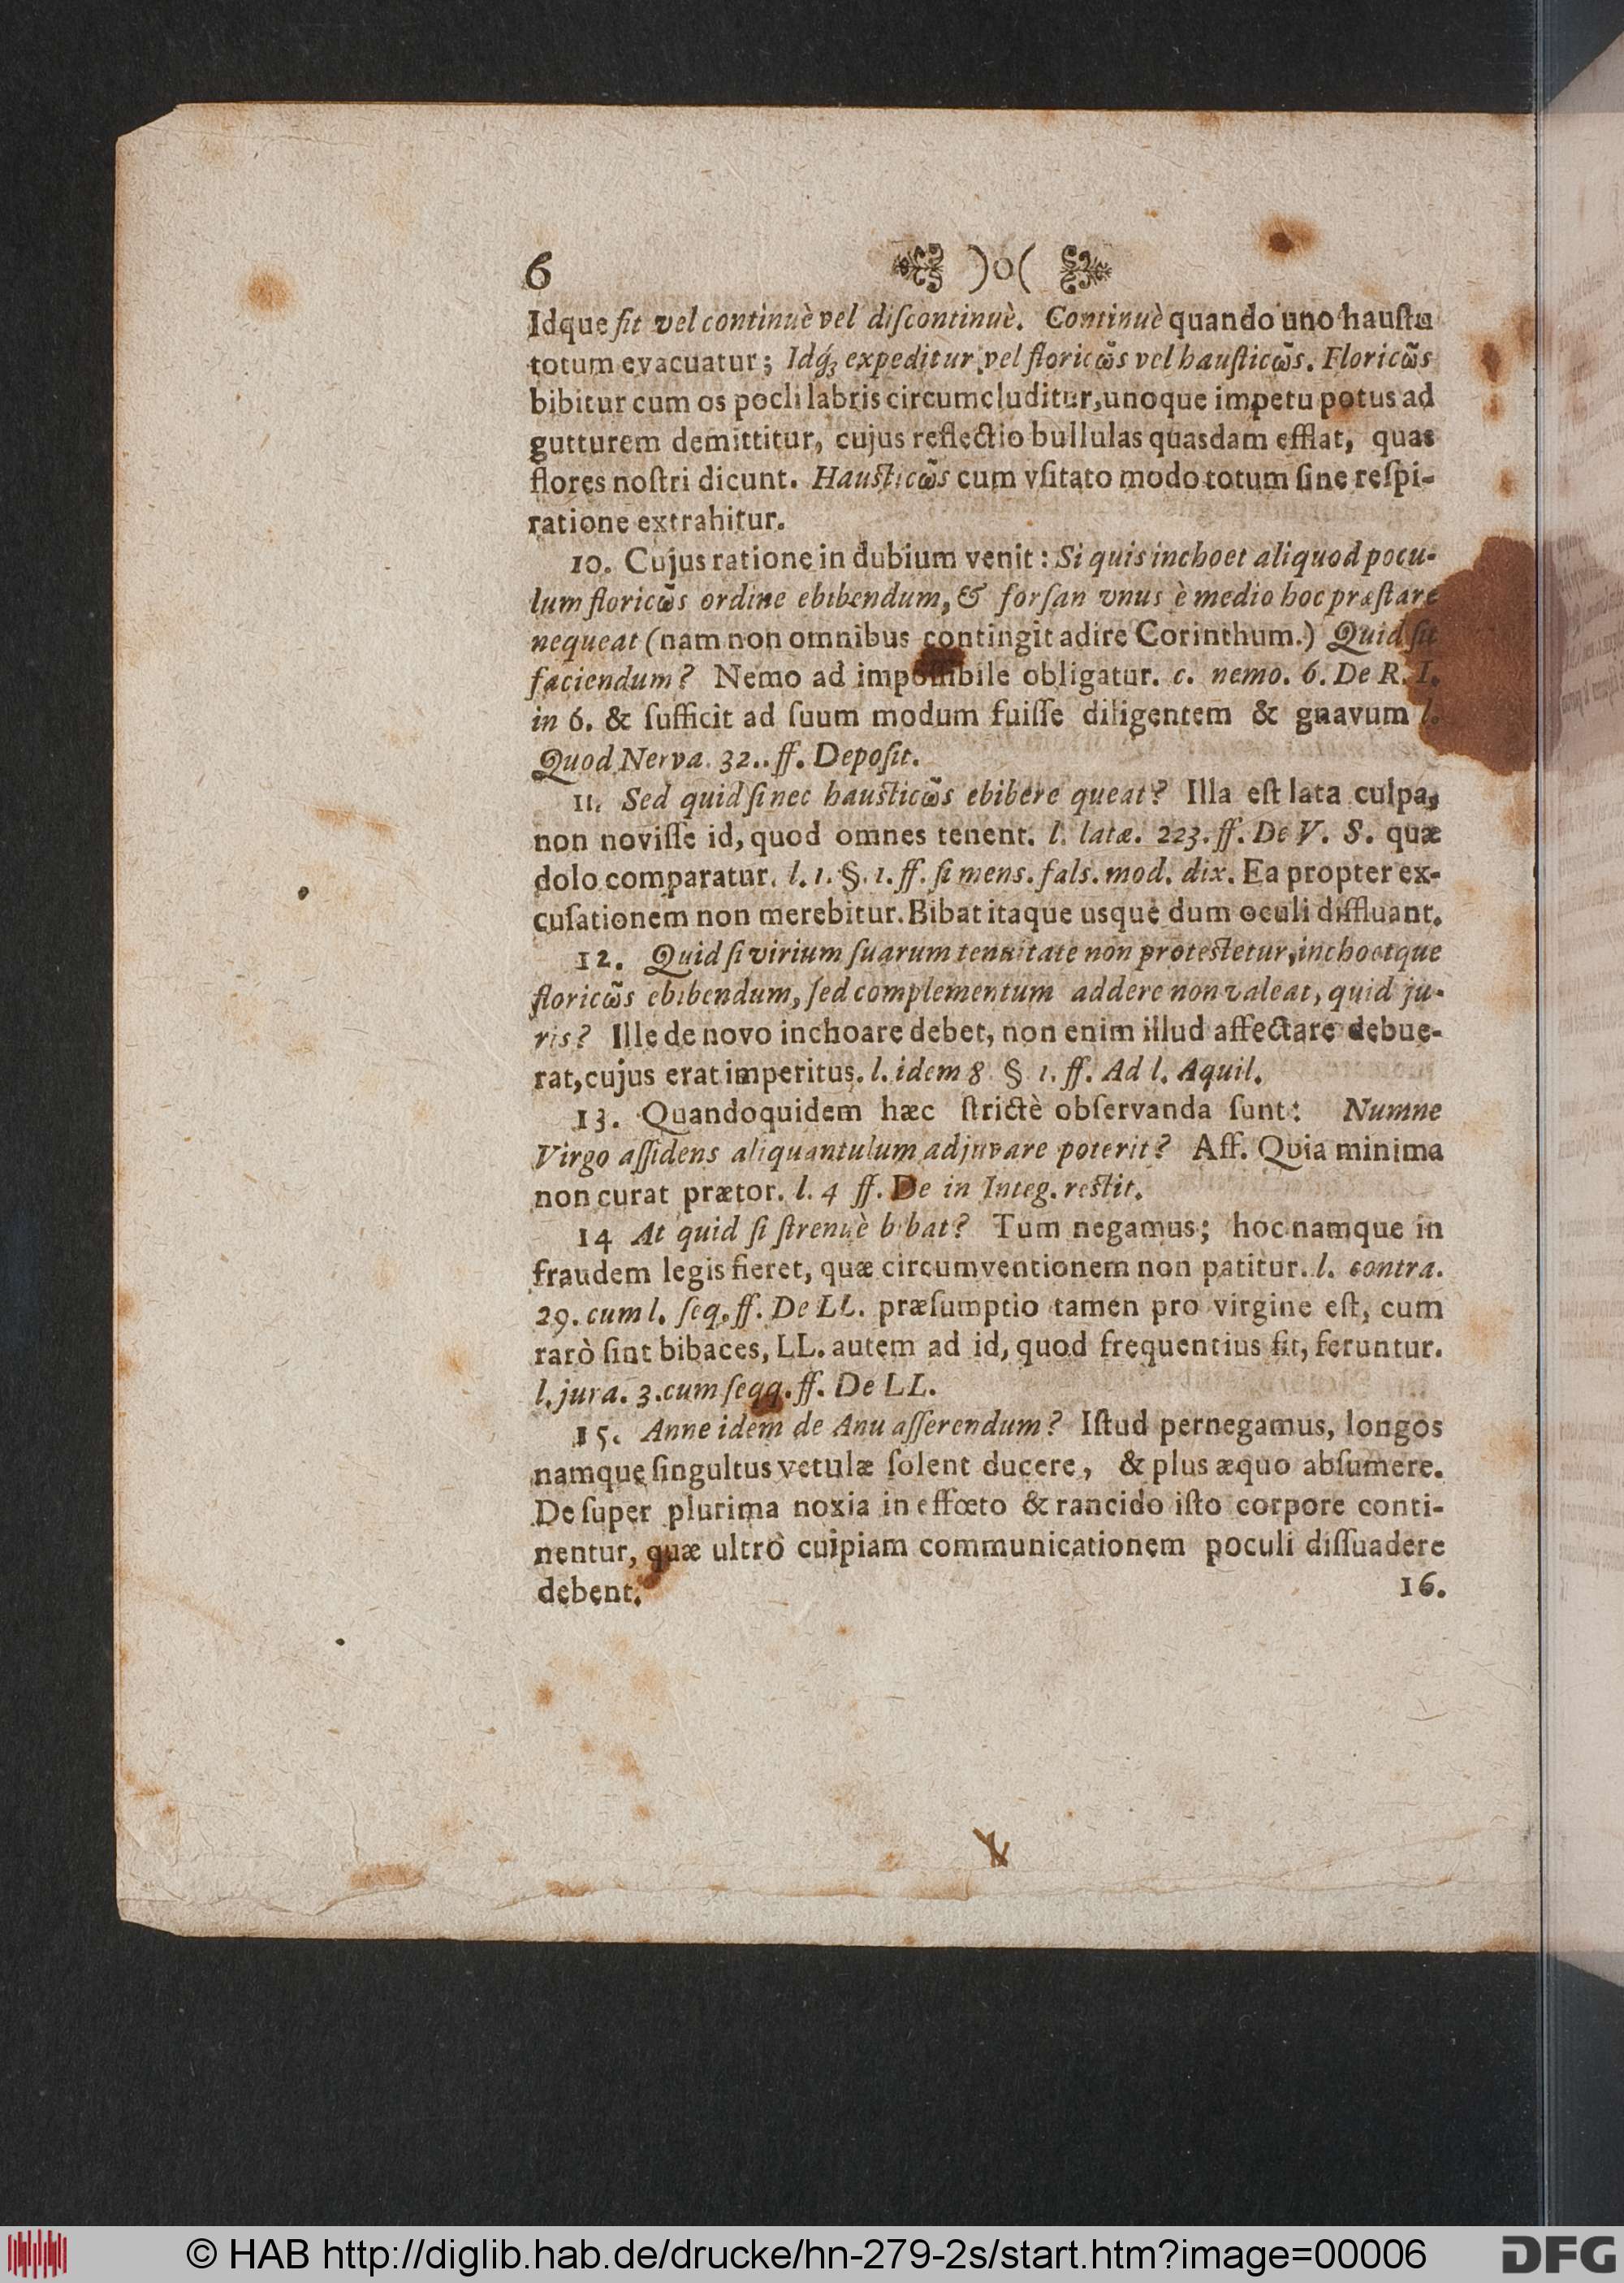 6 )o(
Idque fit vel continuè vel diſcontinuè. Continuè quando uno hauſtu
totum evacuatur; Idq́; expeditur vel floricω̃s vel hauſticω̃s. Floricω̃s
bibitur cum os pocli labris circumcluditur, unoque impetu potus ad
gutturem demittitur, cujus reflectio bullulas quasdam efflat, quas
flores noſtri dicunt. Hauſticω̃s cum vſitato modo totum ſine reſpi-
ratione extrahitur.
10. Cujus ratione in dubium venit: Si quis inchoet aliquod pocu-
lum floricω̃s ordine ebibendum, & forſan vnus è medio hoc præſtare
nequeat (nam non omnibus contingit adire Corinthum.) Quid ſit
faciendum? Nemo ad impoſſibile obligatur. c. nemo. 6. De R. I.
in 6. & ſufficit ad ſuum modum fuiſſe diligentem & gnavum l.
Quod Nerva. 32.. ff. Depoſit.
11. Sed quid ſi nec hauſticω̃s ebibere queat? Illa eſt lata culpa,
non noviſſe id, quod omnes tenent. l. latæ. 223. ff. De V. S. quæ
dolo comparatur. l. 1. §. 1. ff. ſi mens. fals. mod. dix. Ea propter ex-
cuſationem non merebitur. Bibat itaque usque dum oculi diffluant.
12. Quid ſi virium ſuarum tenuitate non proteſtetur, inchoetque
floricω̃s ebibendum, ſed complementum addere non valeat, quid ju-
ris? Ille de novo inchoare debet, non enim illud affectare debue-
rat, cujus erat imperitus. l. idem 8. § 1. ff. Ad l. Aquil.
13. Quandoquidem hæc ſtrictè obſervanda ſunt: Numne
Virgo aſſidens aliquantulum adjuvare poterit? Aff. Quia minima
non curat prætor. l. 4 ff. De in Integ. reſtit.
14 At quid ſi ſtrenuè bibat? Tum negamus; hoc namque in
fraudem legis fieret, quæ circumventionem non patitur. l. contra.
29. cum l. ſeq. ff. De LL. præſumptio tamen pro virgine eſt, cum
rarò ſint bibaces, LL. autem ad id, quod frequentius fit, feruntur.
l. jura. 3. cum ſeqq. ff. De LL.
15. Anne idem de Anu aſſerendum? Iſtud pernegamus, longos
namque ſingultus vetulæ ſolent ducere, & plus æquo abſumere.
De ſuper plurima noxia in effœto & rancido iſto corpore conti-
nentur, quæ ultrò cuipiam communicationem poculi diſſuadere
debent. 16.
© HAB http://diglib.hab.de/drucke/hn-279-2s/start.htm?image=00006 DFG